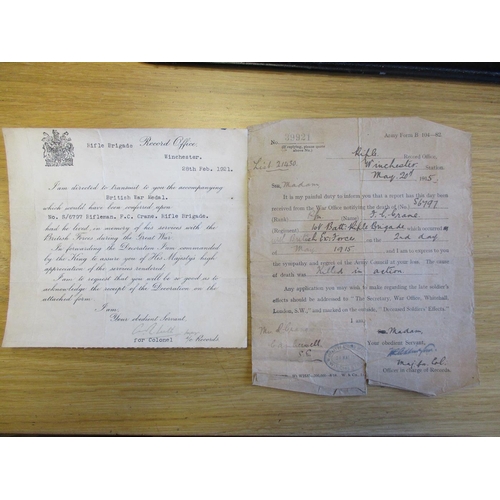 Rifle Brigade Record Office,
Winchester.
28th Feb, 1921.
I am directed to transmit to you the accompanying
British War Medal.
which would have been conferred upon
No. S/6797 Rifleman, F.C. Crane, Rifle Brigade.
had he lived in memory of his services with the
British Forces during the Great War.
In forwarding the Decoration I am commanded
by the King to assure you of His Majesty's high
appreciation of the services rendered.
I am to request that you will be so good as to
acknowledge the receipt of the Decoration on the
attached form.
I am,
Your obedient Servant,
for Colonel
i/c Records
No. 39921
Army Form B. 104—82.
(If replying, please quote
above No.)
Rifle
Record Office,
Winchester
Station.
May 20th 1915.
Madam
It is my painful duty to inform you that a report has this day been
received from the War Office notifying the death of (No.) S6797
(Rank) (Name) F. C. Crane
(Regiment) Batt Rifle Brigade which occurred
Forces on the 2nd day
of 1915, and I am to express to you
the sympathy and regret of the Army Council at your loss. The cause
of death was Killed in action
Any application you may wish to make regarding the late soldier's
effects should be addressed to "The Secretary, War Office, Whitehall,
London, S.W.," and marked on the outside, "Deceased Soldiers' Effects."
I am
Madam
Your obedient Servant,
Officer in charge of Records.